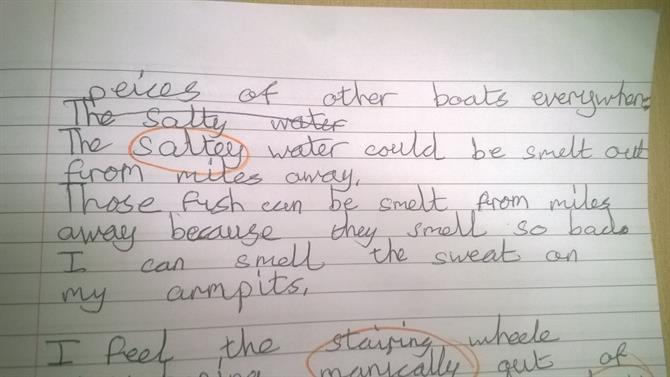 peices of other boats everywhere
The salty water
The saltey water could be smelt out
from miles away.
Those fish can be smelt from miles
away because they smell so bad.
I can smell the sweat on
my armpits.
I feel the stairing wheele
manically out of